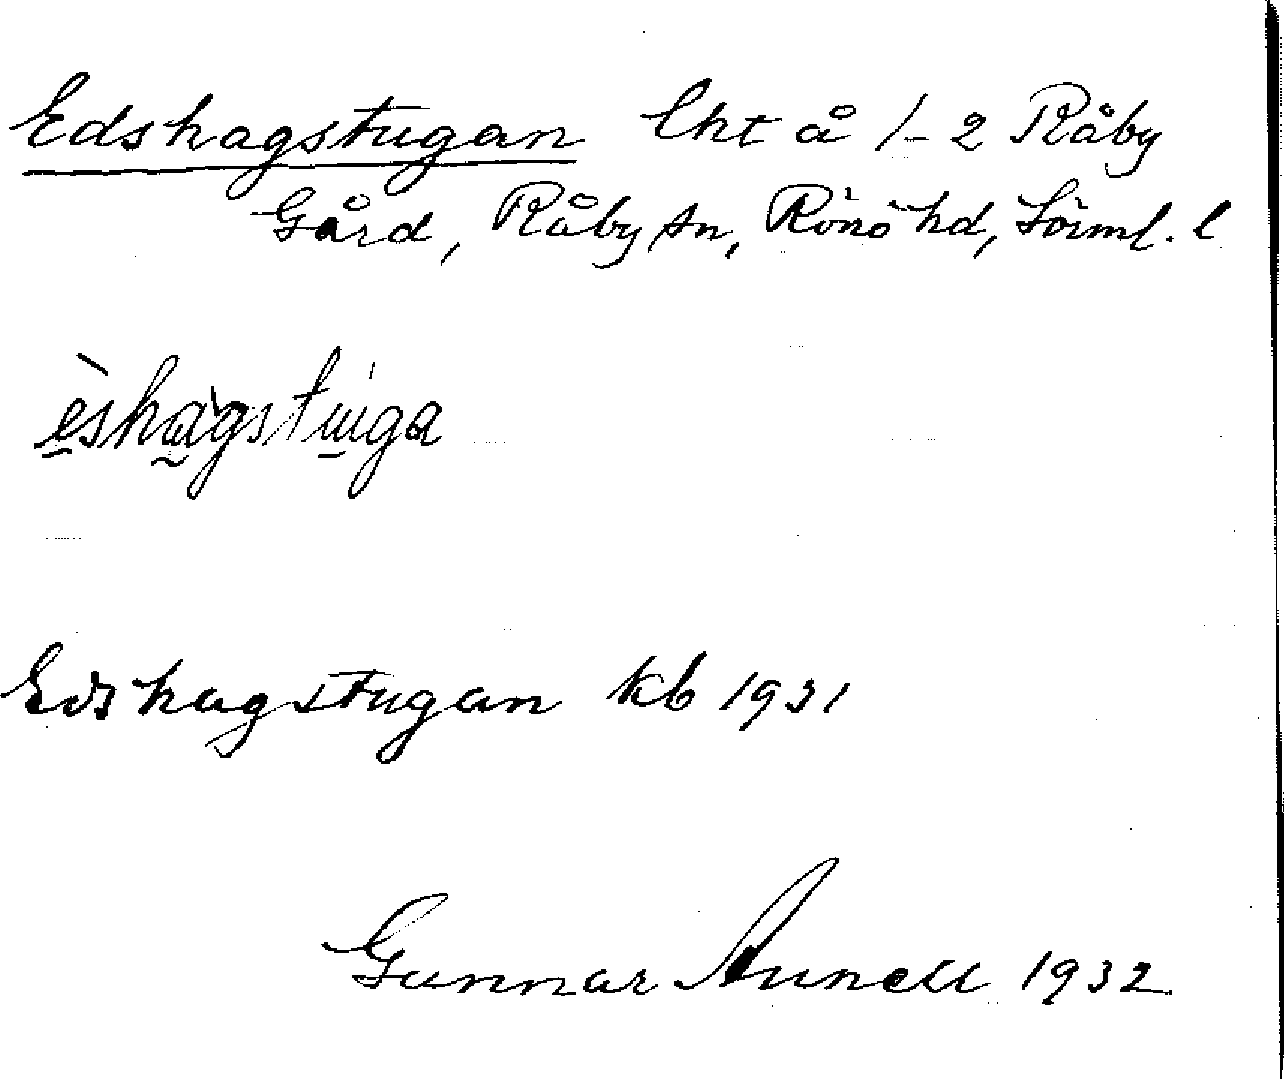 Edshagstugan lht å 1-2 Råby
Gård, Råby sn, Rönö hd, Söiml. l
èshàgstuga
Edshagstugan kb 1931
Gunnar Annell 1932